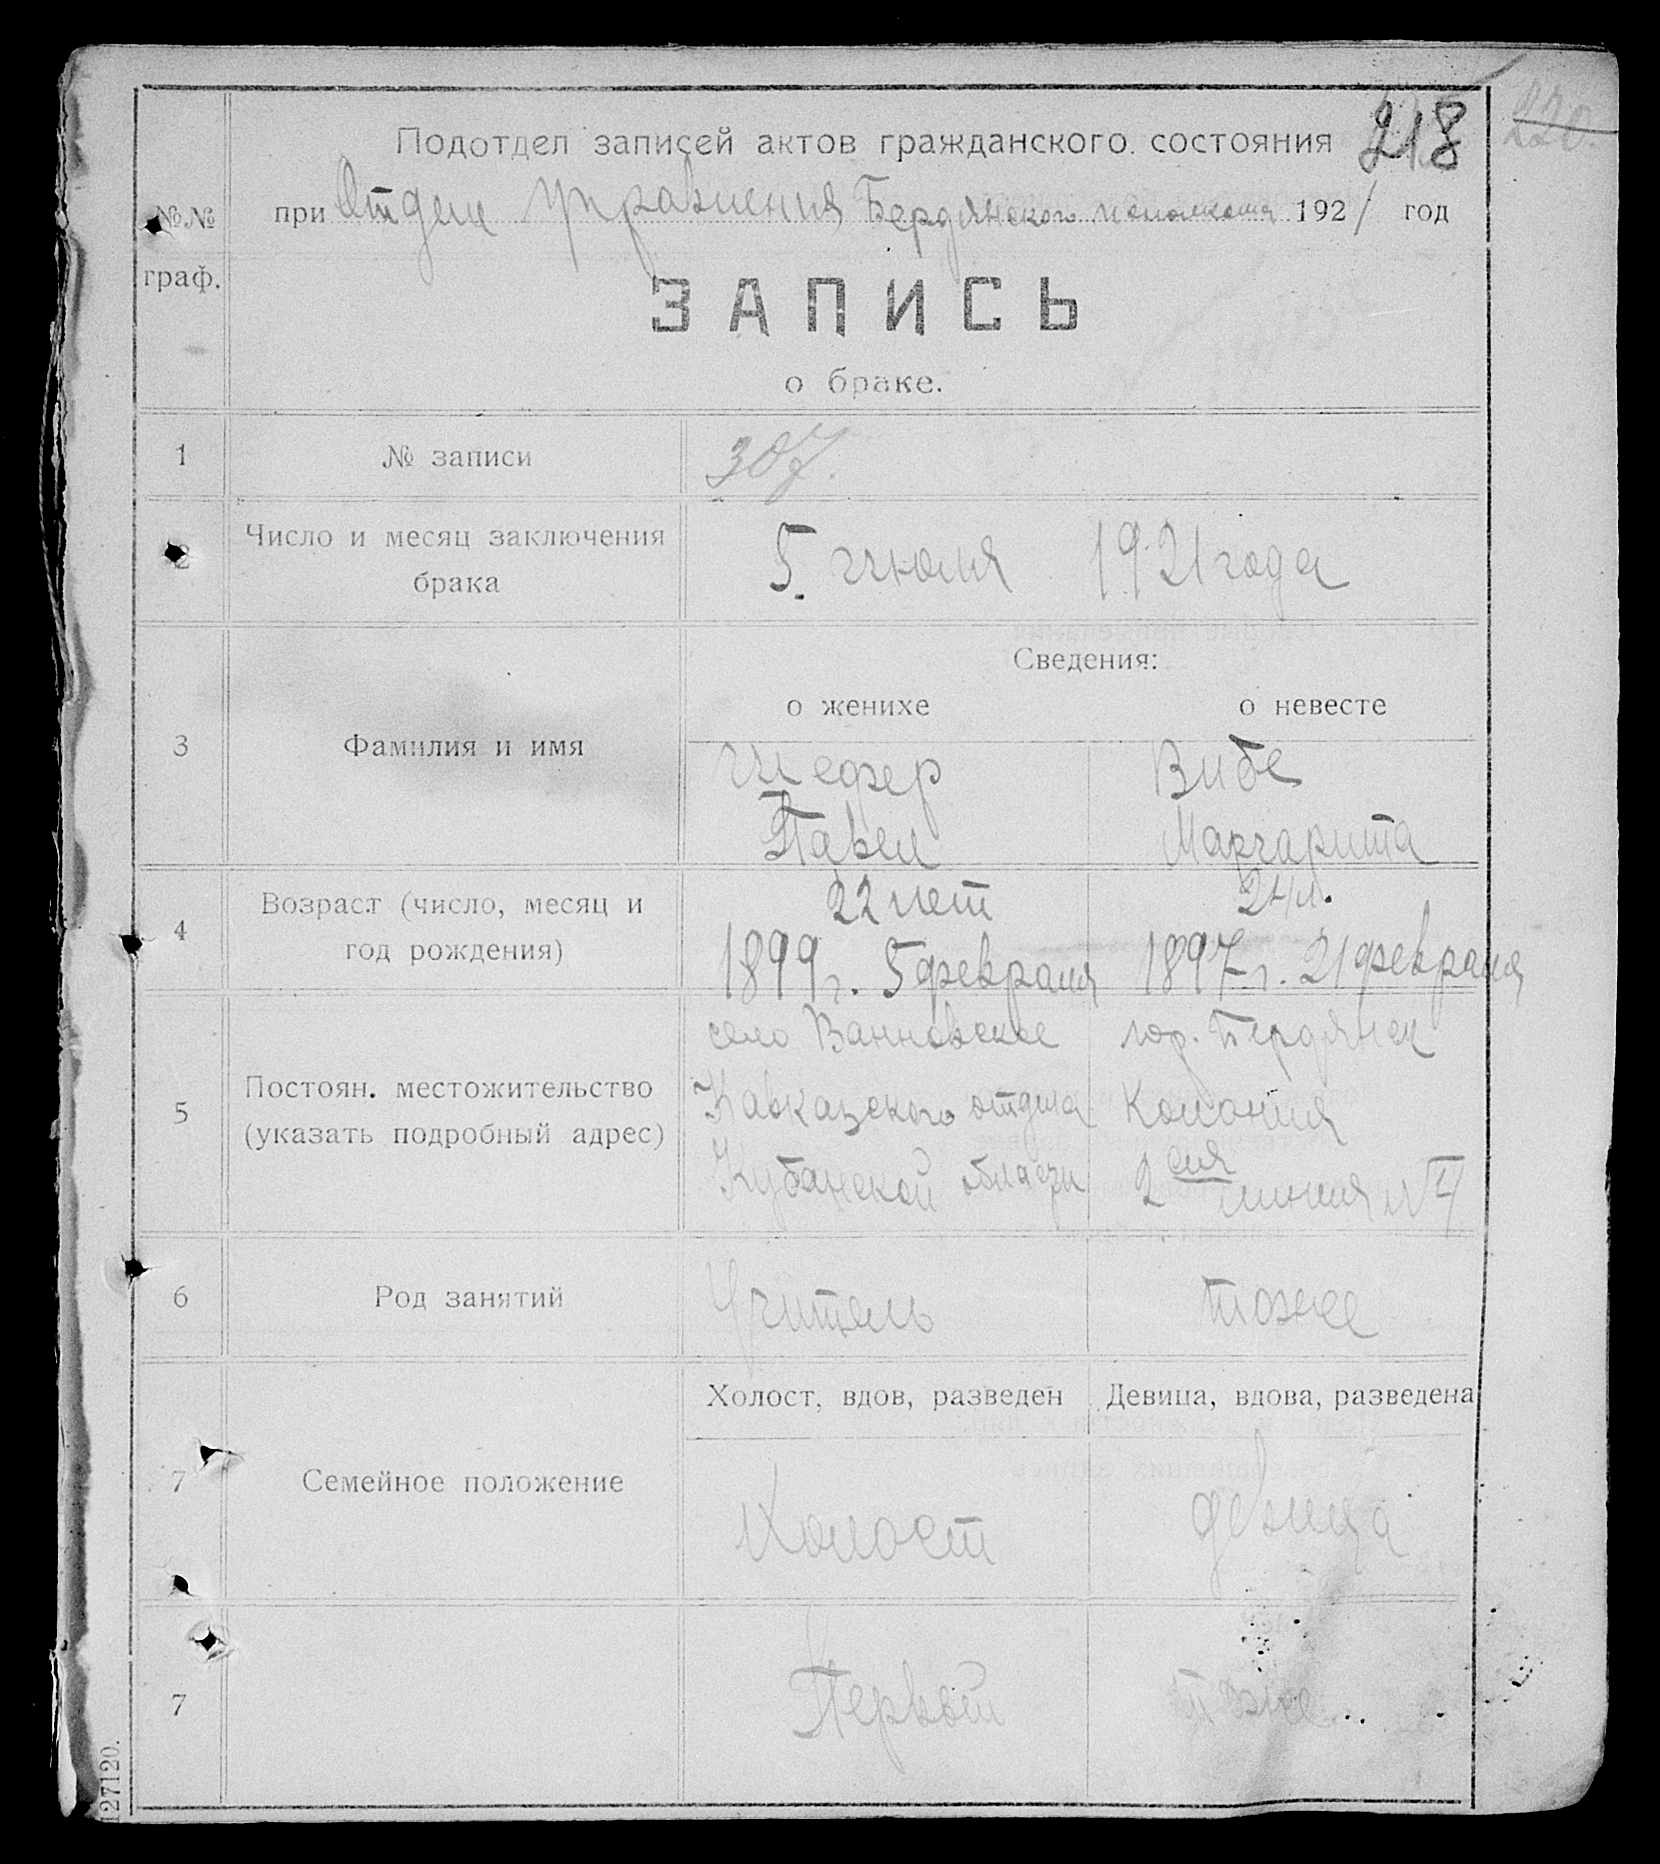 218 220.
Подотдел записей актов гражданского состояния
№№ граф.
при Отделе Управления Бердянского исполкома 1921 год
ЗАПИСЬ
о браке.
1 № записи 307.
2 Число и месяц заключения брака 5 июля 1921 года
Сведения:
о женихе о невесте
3 Фамилия и имя
Шефер Вибе
Павел Маргарита
4 Возраст (число, месяц и год рождения)
22 лет 24 л.
1899 г. 5 февраля 1897 г. 21 февраля
5 Постоян. местожительство (указать подробный адрес)
село Ванновское гор. Бердянск
Кавказского отдела Колония
Кубанской области 2 ая линия №4
6 Род занятий Учитель тоже
Холост, вдов, разведен Девица, вдова, разведена
7 Семейное положение Холост девица
7 Первый тоже
127120.